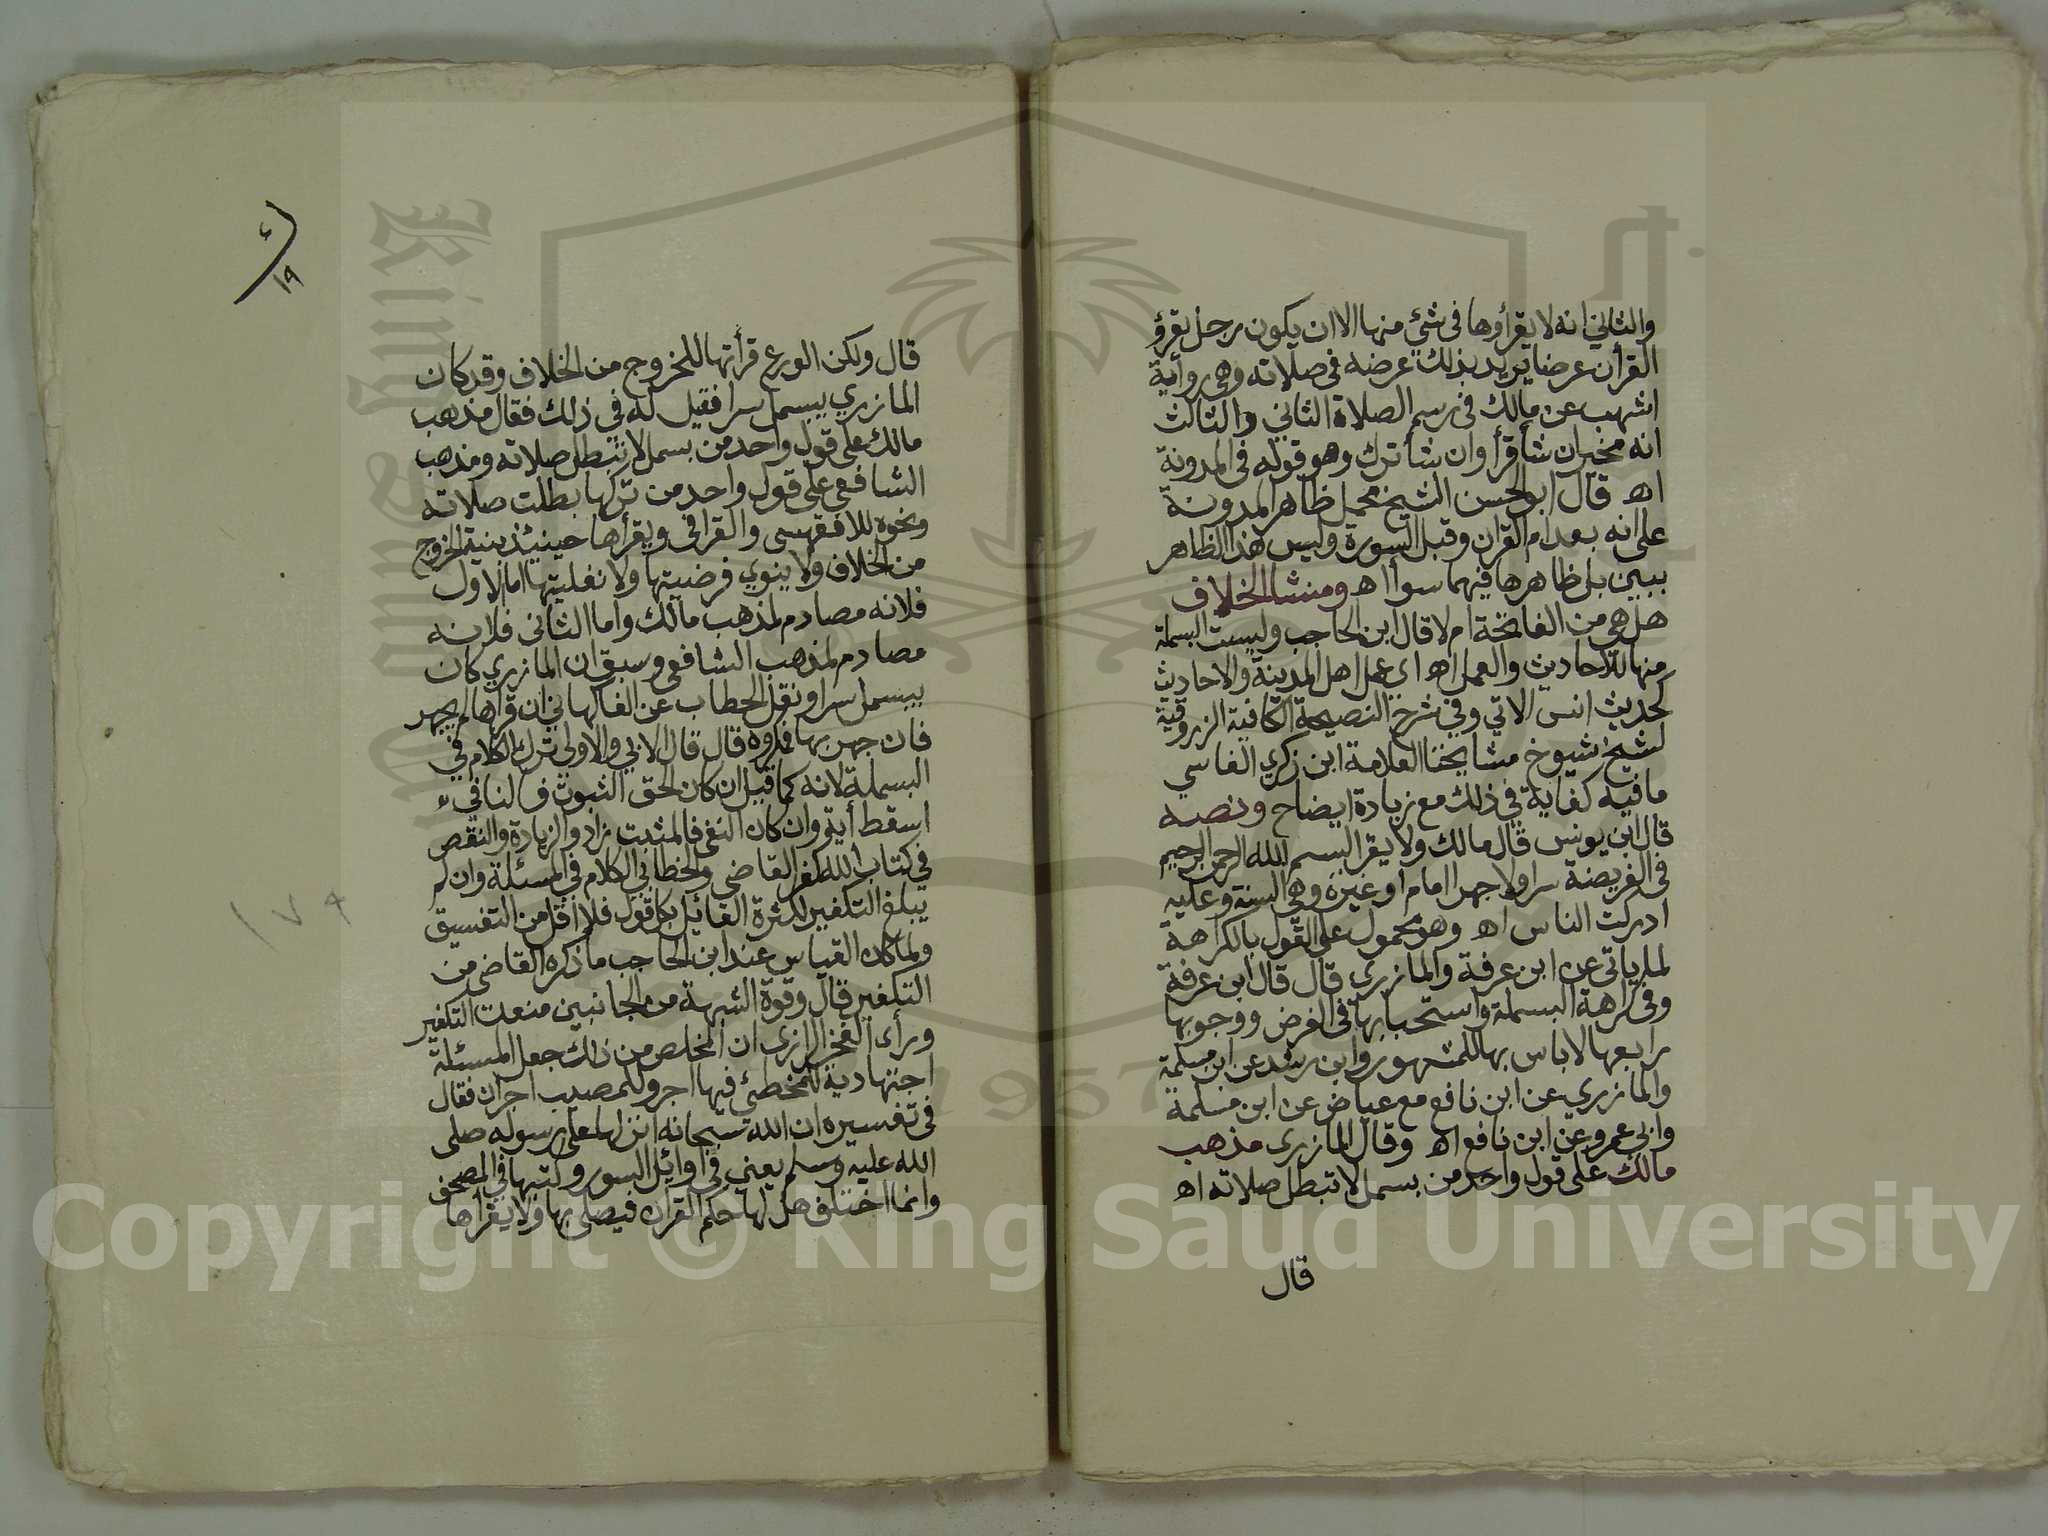 والثاني انه لا يقرأوها في شئ منها الا ان يكون رجل يقرؤ
القرأن عرضا يريد بذلك عرضه في صلاته وهي رواية
اشهب عن مالك في رسم الصلاة الثاني والثالث
انه مخير ان شأ قرأ وان شأ ترك وهو قوله في المدونة
اه قال ابو الحسن الشيخ محمل ظاهر المدونة
على انه بعد ام القران وقبل السورة وليس هذا الظاهر
ببين بل ظاهرها فيهما سوأ اه ومنشا الخلاف
هل هي من الفاتحة ام لا قال ابن الحاجب وليست البسملة
منها للاحاديث والعمل اه اي عمل اهل المدينة والاحاديث
كحديث انس الاتي وفي شرح النصيحة الكافية الزروقية
لشيخ شيوخ مشايخنا العلامة ابن زكري الفاسي
ما فيه كفاية في ذلك مع زيادة ايضاح ونصه
قال ابن يونس قال مالك ولا يقرا بسم الله الرحمن الرحيم
في الفريضة سرا ولا جهرا امام او غيره وهي السنة وعليه
ادركت الناس اه وهو محمول على القول بالكراهة
لما ياتي عن ابن عرفة والمازري قال قال ابن عرفة
وفي كراهة البسملة واستحبابها في الفرض ووجوبها
رابعها لاباس بها للمشهور وابن رشد عن ابن مسلمة
والمازري عن ابن نافع مع عياض عن ابن مسلمة
وابي عمرو عن ابن نافع اه وقال المازري مذهب
مالك على قول واحد من بسمل لا تبطل صلاته اه
قال
١٩
قال ولكن الورع قرأتها للخروج من الخلاف وقد كان
المازري يبسمل سرا فقيل له في ذلك فقال مذهب
مالك على قول واحد من بسمل لا تبطل صلاته ومذهب
الشافعي على قول واحد من تركها بطلت صلاته
ونحوه للافقهسي والقرافي ويقرأها حينئذ بنية الخروج
من الخلاف ولا ينوي فرضيتها ولا نفليتها اما الاول
فلانه مصادم لمذهب مالك واما الثاني فلانه
مصادم لمذهب الشافعي وسبق ان المازري كان
يبسمل سرا ونقل الحطاب عن الفاكهاني ان قرأها لم يجهر
فان جهر بها فمكروه قال قال الابي والاولى ترك الكلام في
البسملة لانه كما قيل ان كان لحق الثبوت فالنافي
اسقط أية وان كان النفي فالمثبت زاد والزيادة والنقص
في كتاب الله كفر القاضي والخطابي الكلام في المسئلة وان لم
يبلغ التكفير لكثرة القائل بكل قول فلا اقل من التفسيق
ولما كان القياس عند ابن الحاجب ما ذكره القاضي من
التكفير قال وقوة الشبهة من الجانبين منعت التكفير
ورأى الفخر الرازي ان المخلص من ذلك جعل المسئلة
اجتهادية للمخطئ فيها اجر وللمصيب اجران فقال
في تفسيره ان الله سبحانه انزلها على رسوله صلى
الله عليه وسلم يعني في اوائل السور وكتبها في المصحف
وانما اختلف هل لها حكم القران فيصلى بها ولا يقرأها
Copyright © King Saud University
1957